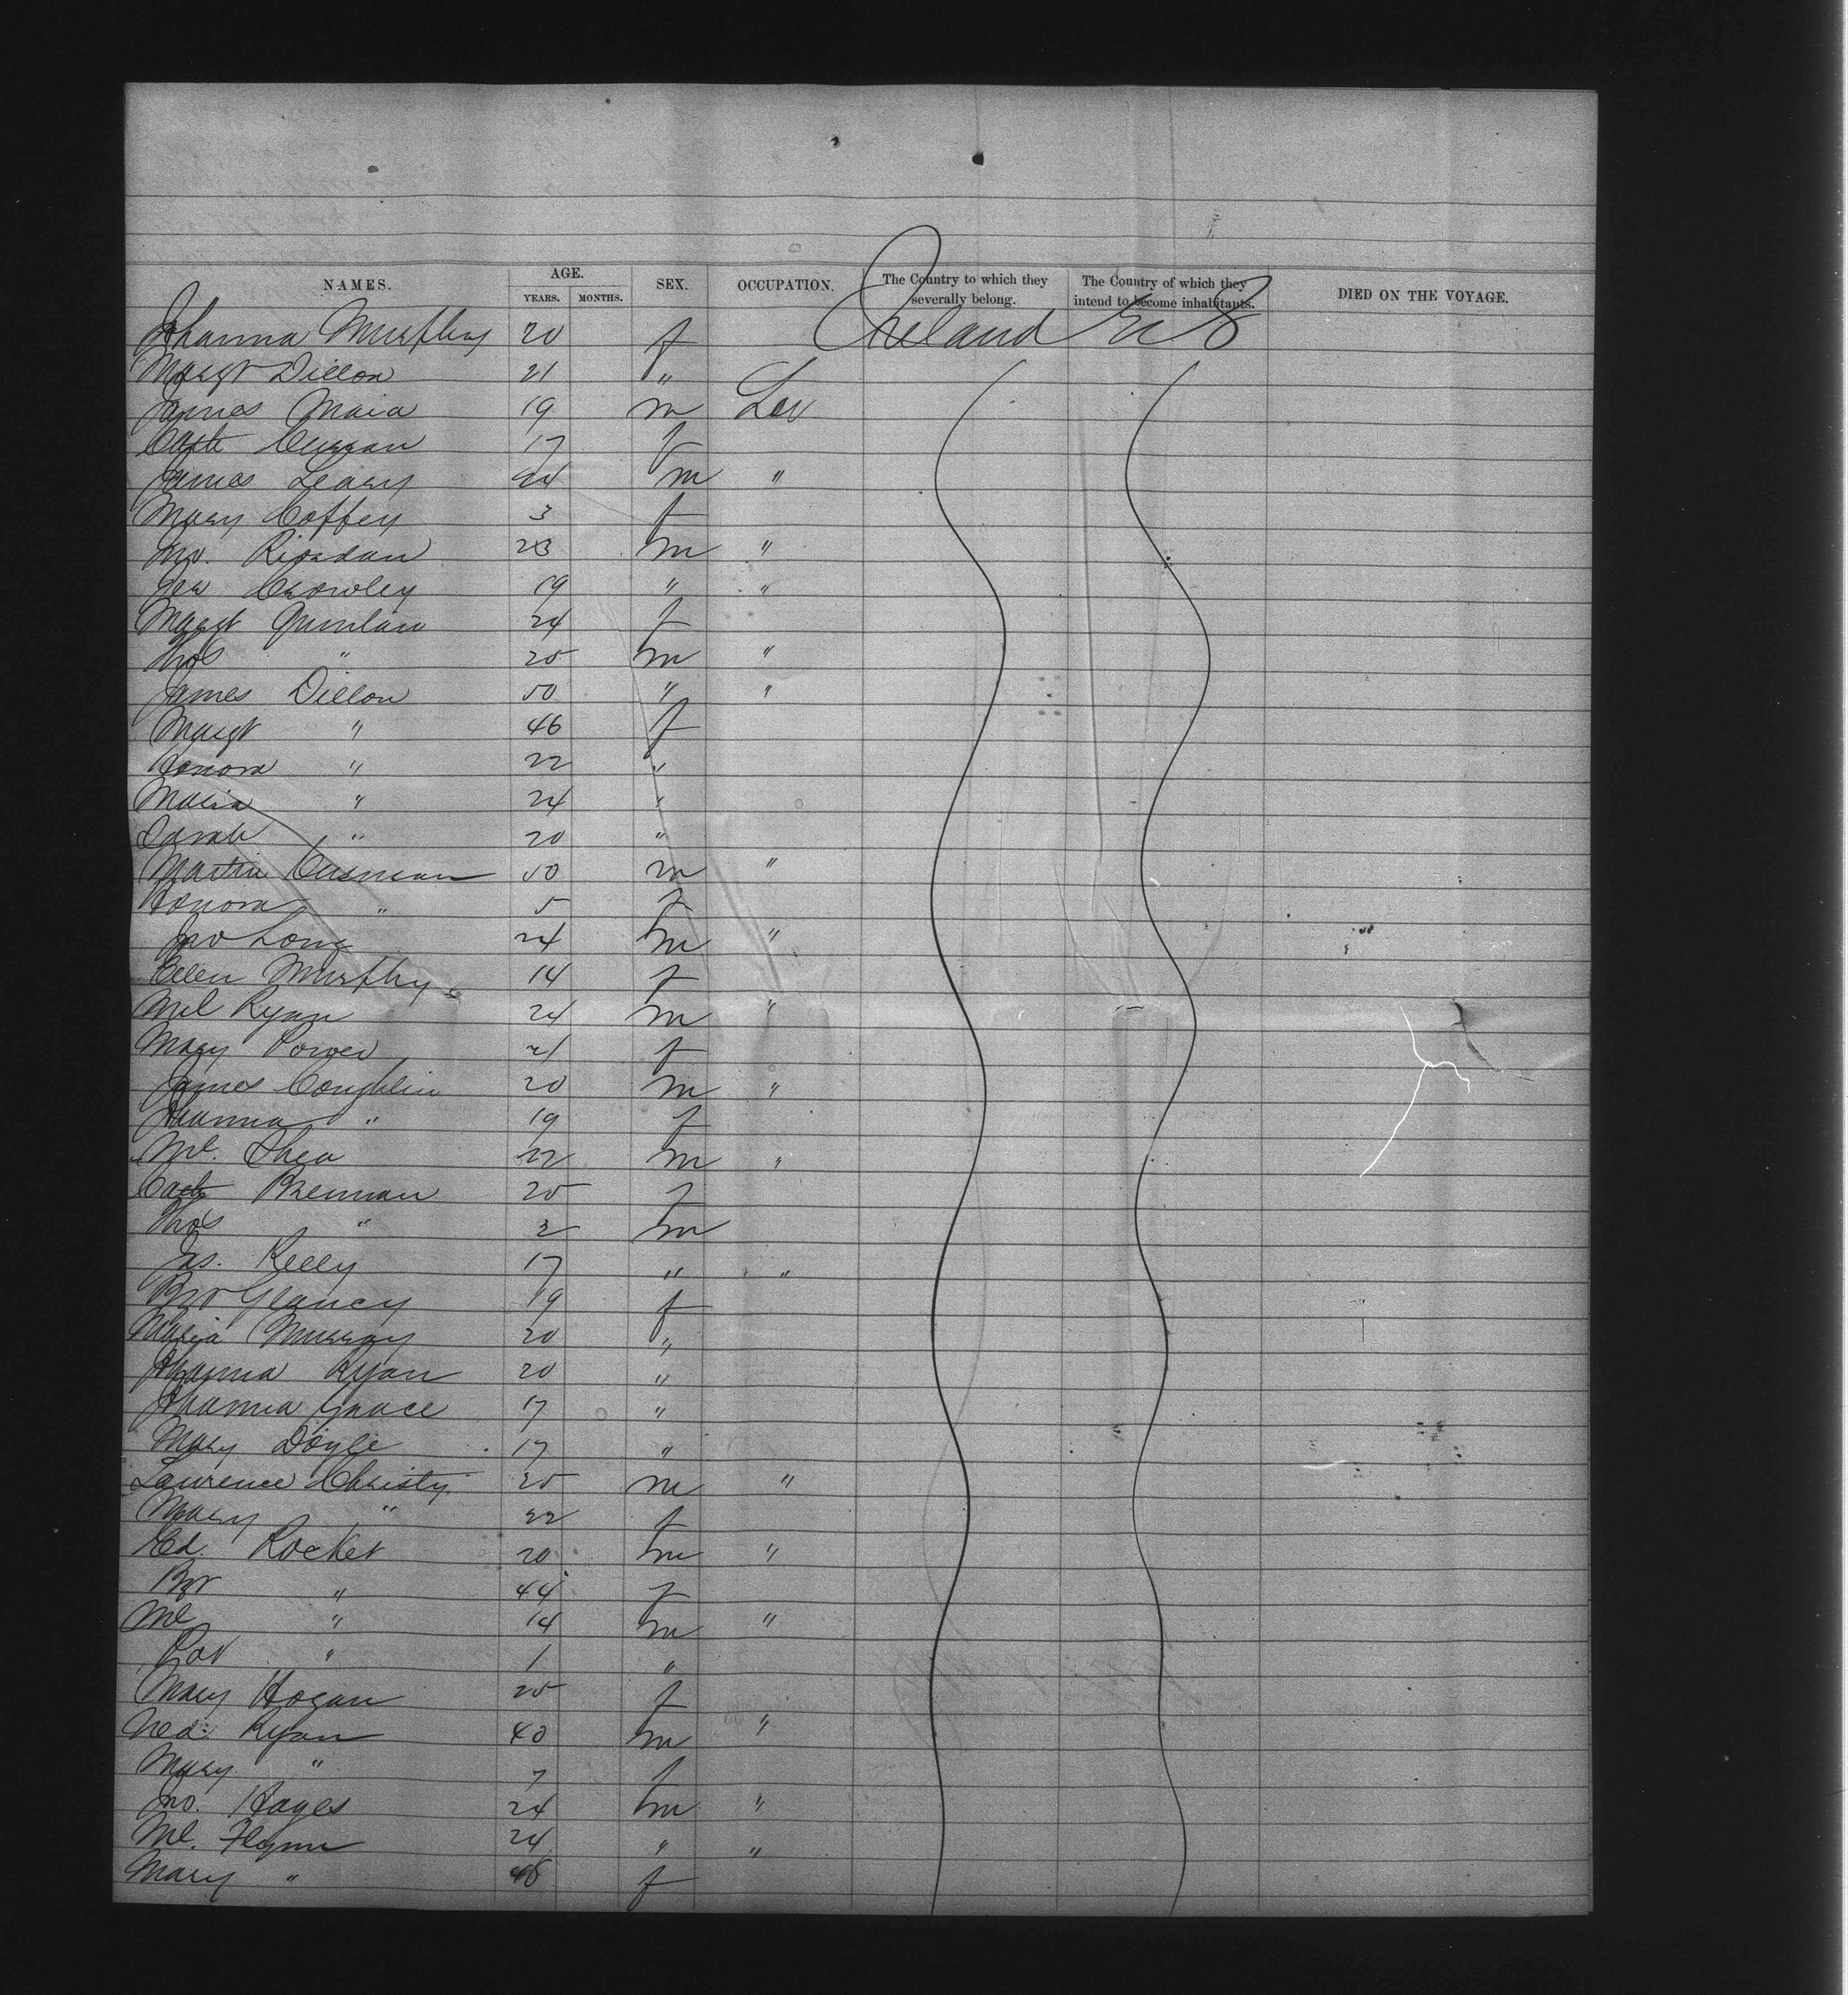 NAMES. AGE. SEX. OCCUPATION. The Country to which they severally belong. The Country of which they intend to become inhabitants. DIED ON THE VOYAGE.
YEARS. MONTHS.
Johanna Murphy 20 f Ireland
Margt Dillon 21 "
James 19 m Lav
Cath Curran 17 f
James Leary 24 m "
Mary Coffey 3 f
Jno. Riordan 23 m "
Crowley 19 " "
Margt Quinlan 24 f
Thos " 25 m "
James Dillon 50 " "
Margt " 46 f
Honora " 22 "
Maria " 24 "
Sarah " 20 "
Martin 50 m "
Honora " 5 f
Jno Long 24 m "
Ellen Murphy 14 f
Ml Ryan 24 m "
Mary Power 21 f
James Coughlin 20 m "
Johanna " 19 f
Ml. Shea 22 m "
Cath Brennan 25 f
Thos " 2 m
Jas. Kelly 17 " "
Bgt Glancy 19 f
Maria Murray 20 "
Johanna Ryan 20 "
Johanna Grace 17 "
Mary Doyle 17 "
Lawrence Christy 25 m "
Mary " 22 f
Ed. Rocket 20 m "
Bgt " 44 f
Ml " 14 m "
Pat " 1 "
Mary Hogan 25 f
Ned: Ryan 40 m "
Mary " 7 f
Jno. Hayes 24 m "
Ml. Flynn 24 " "
Mary " f